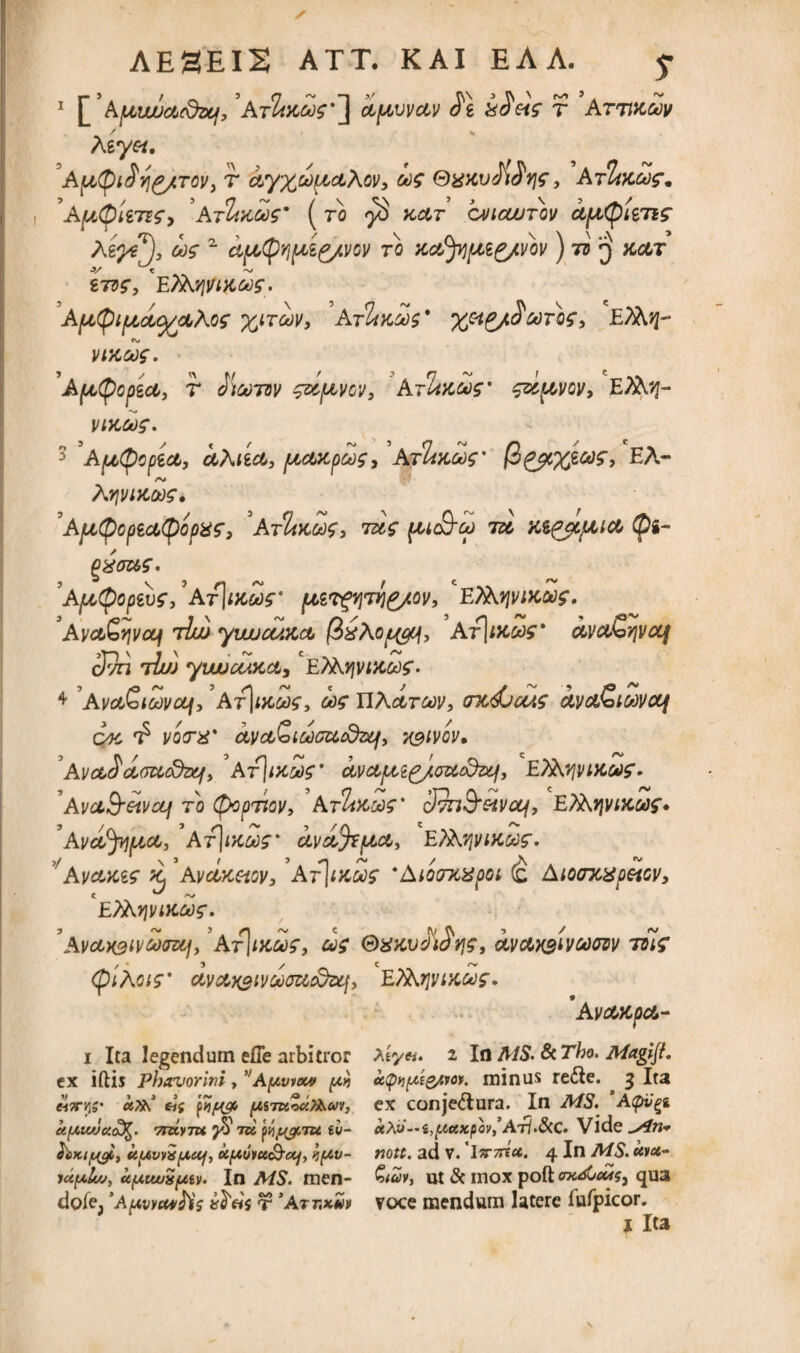 ΛΕΞΕΙΣ ΑΤΤ. ΚΑΙ ΕΛΛ. 5
1 [Ἀμωύαςθαι, Ἀτlικῶς·] ἀμυναν δὲ ȣδεὶς τ̃ Ἀττικῶν
λέγει.
Ἀμφιδήριτον, τ̀ ἀγχώμαλον, ὡς Θȣκυδίδης, Ἀτlικῶς.
Ἀμφίετες, Ἀτlικῶς· (τὸ γὸ κατ' ἐνιαυτὸν ἀμφίετες
λέγε), ὡς 2 ἀμφημέρινον τὸ καθημερινὸν) τὸ ἢ κατ'
ἔτος, Ἑλληνικῶς.
Ἀμφιμάσχαλος χιτὼν, Ἀτlικῶς· χειριδωτὸς, Ἑλλη-
νικῶς.
Ἀμφορέα, τ̀ δίωτον στάμνον, Ἀτlικῶς· στάμνον, Ἑλλη-
νικῶς.
3 Ἀμφορέα, ἁλιέα, μακρῶς, Ἀτlικῶς· βραχέως, Ἑλ-
ληνικῶς.
Ἀμφορεαφόρȣς, Ἀτlικῶς, τὰς μισθῷ τὰ κεράμια φε-
ρȣσας.
Ἀμφορεὺς, Ἀτlικῶς· μετρητήριον, Ἑλληνικῶς.
Ἀναβῆναι τὴν γυναῖκα βȣλομαι, Ἀτlικῶς· ἀναβῆναι
ἐπὶ τὴν γυναῖκα, Ἑλληνικῶς.
4 Ἀναβιῶναι, Ἀτlικῶς, ὡς Πλάτων, σκέψαις ἀναβιῶναι
ἐκ τ̃ νόσȣ· ἀναβιώσασθαι, κοινόν.
Ἀναδάσασθαι, Ἀτlικῶς· ἀναμερίσασθαι, Ἑλληνικῶς.
Ἀναθεῖναι τὸ φορτίον, Ἀτlικῶς· ἐπιθεῖναι, Ἑλληνικῶς.
Ἀνάθημα, Ἀτlικῶς· ἀνάθεμα, Ἑλληνικῶς.
Ἄνακες καὶ Ἀνάκειον, Ἀτlικῶς· Διόσκȣροι καὶ Διοσκȣρεῖον,
Ἑλληνικῶς.
Ἀνακοινῶσαι, Ἀτlικῶς, ὡς Θȣκυδίδης, ἀνακοινῶσαν τοῖς
φίλοις· ἀνακοινώσασθαι, Ἑλληνικῶς.
Ἀνακρα-
1 Ita legendum esse arbitror
ex istis Phavorini, Ἄμυναν μὴ
εἴπῃς· ἀλλ' εἰς ῥῆμα μεταβάλλων,
ἀμύναςθαι. πάντα γὸ τὰ ῥήματα εὐ-
δόκιμα, ἀμυνȣμαι, ἀμύναςθαι, ἠμυ-
νάμην, ἀμυνȣμεν. In MS. men-
dose, Ἀμυναν δὶς ȣδεὶς τ̃ Ἀττικῶν
λέγει. 2 In MS. & Tho. Magist.
ἀφημέρινον. minus recte. 3 Ita
ex conjectura. In MS. Ἀφύρε
ἀλύ--ε, μακρὸν, Ἀτl. &c. Vide An-
nott. ad v. Ἱππία. 4 In MS. ἀνα-
βιῶν, ut & mox post σκέψαις, qua
voce mendum latere suspicor.
1 Ita